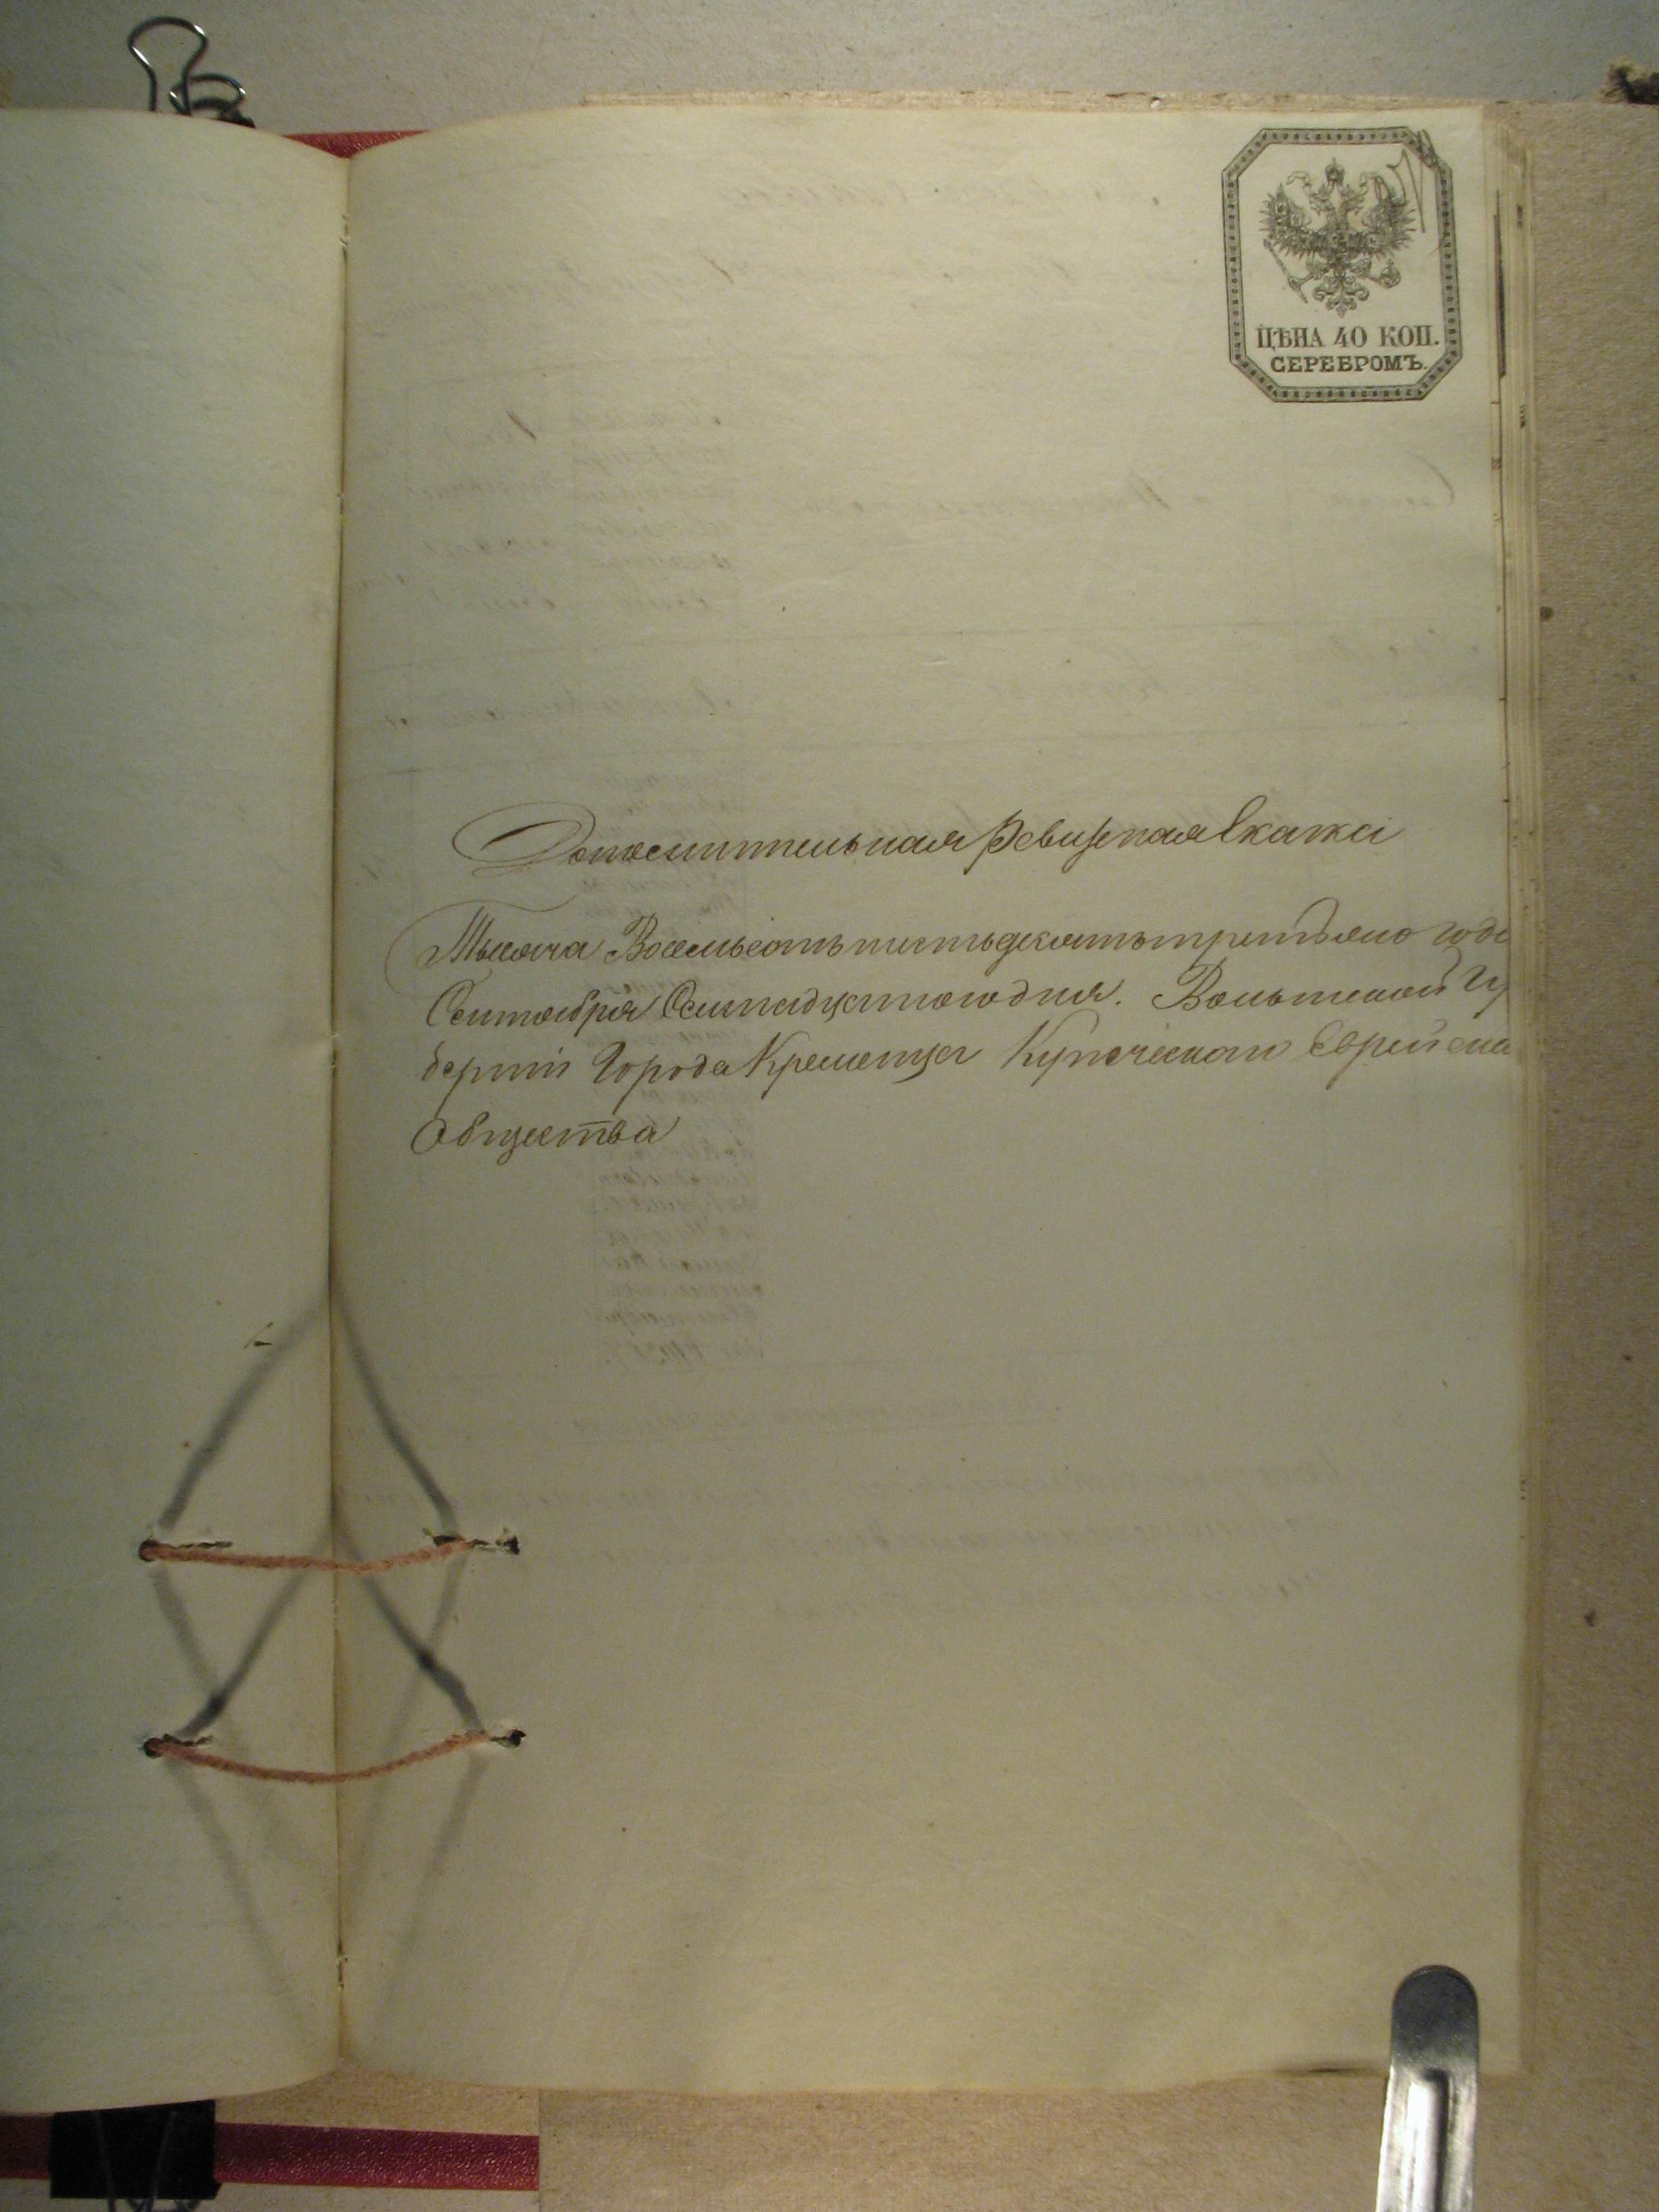 ЦѢНА 40 КОП.
СЕРЕБРОМЪ.
Дополнительная Ревизская Скажка
Тысяча Восемьсотъ шестьдесятъ третьяго года
Сентября дня. Волынской Гу
берніи Города Кременца Купеческаго Еврейска
Общества